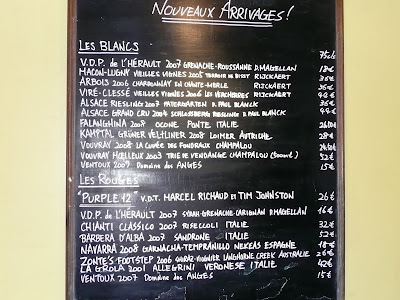 NOUVEAUX ARRIVAGES!
LES BLANCS 75cl
V.D.P. de L'HÉRAULT 2007 GRENACHE-ROUSSANNE D.MAGELLAN 18€
MACON-LUGNY VIEILLES VIGNES 2005 RIJCKAERT 36€
ARBOIS 2006 CHARDONNAY EN CHANTE-MERLE RIJCKAERT 35€
VIRÉ-CLESSÉ VIEILLES VIGNES 2006 LES VERCHERES RIJCKAERT 42€
ALSACE RIESLING 2007 PATERGARTEN D. PAUL BLANCK 36€
ALSACE GRAND CRU 2004 SCHLOSSBERG RIESLING D. PAUL BLANCK 44€
FALANGHINA 2007 OCONE PONTE ITALIE
KAMPTAL GRÜNER VELTLINER 2008 LOIMER AUTRICHE 28€
VOUVRAY 2008 LA CUVÉE DES FONDRAUX CHAMPALOU
VOUVRAY MOELLEUX 2003 TRIE DE VENDANGE CHAMPALOU (500ml) 52€
VENTOUX 2007 DOMAINE des ANGES 15€
LES ROUGES
"PURPLE 12" V.D.T. MARCEL RICHAUD ET TIM JOHNSTON 26€
V.D.P. de L'HÉRAULT 2007 SYRAH-GRENACHE-CARIGNAN D.MAGELLAN 16€
CHIANTI CLASSICO 2007 RISECCOLI ITALIE 32€
BARBERA D'ALBA 2007 SANDRONE ITALIE 52€
NAVARRA 2008 GARNACHA-TEMPRANILLO NEKEAS ESPAGNE 18€
ZONTE'S FOOTSTEP 2006 SHIRAZ-VIOGNIER LANGHORNE CREEK AUSTRALIE 26€
LA GROLA 2001 ALLEGRINI VERONESE ITALIE 42€
VENTOUX 2007 DOMAINE des ANGES 15€